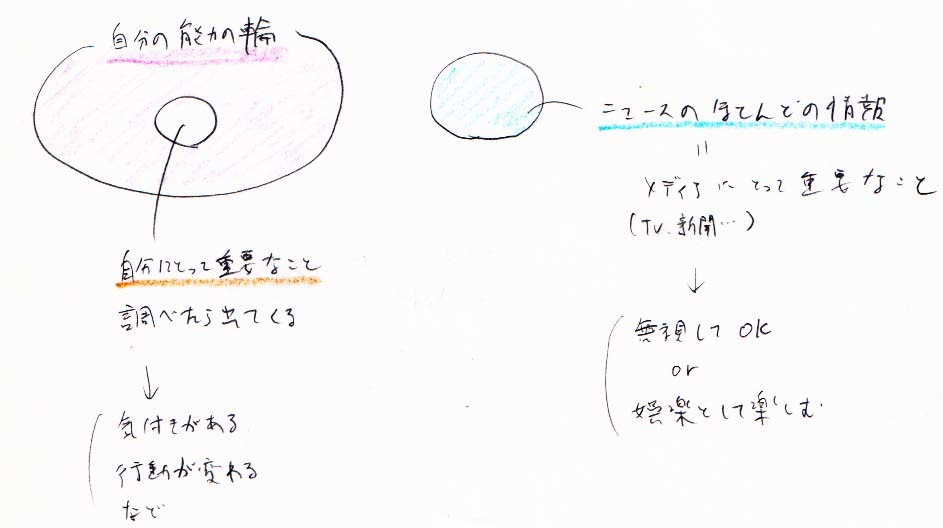 自分の能力の輪
自分にとって重要なこと
調べたら出てくる
↓
気付きがある
行動が変わる
など
ニュースのほとんどの情報
＝
メディアにとって重要なこと
(TV.新聞…)
↓
無視してOK
or
娯楽として楽しむ